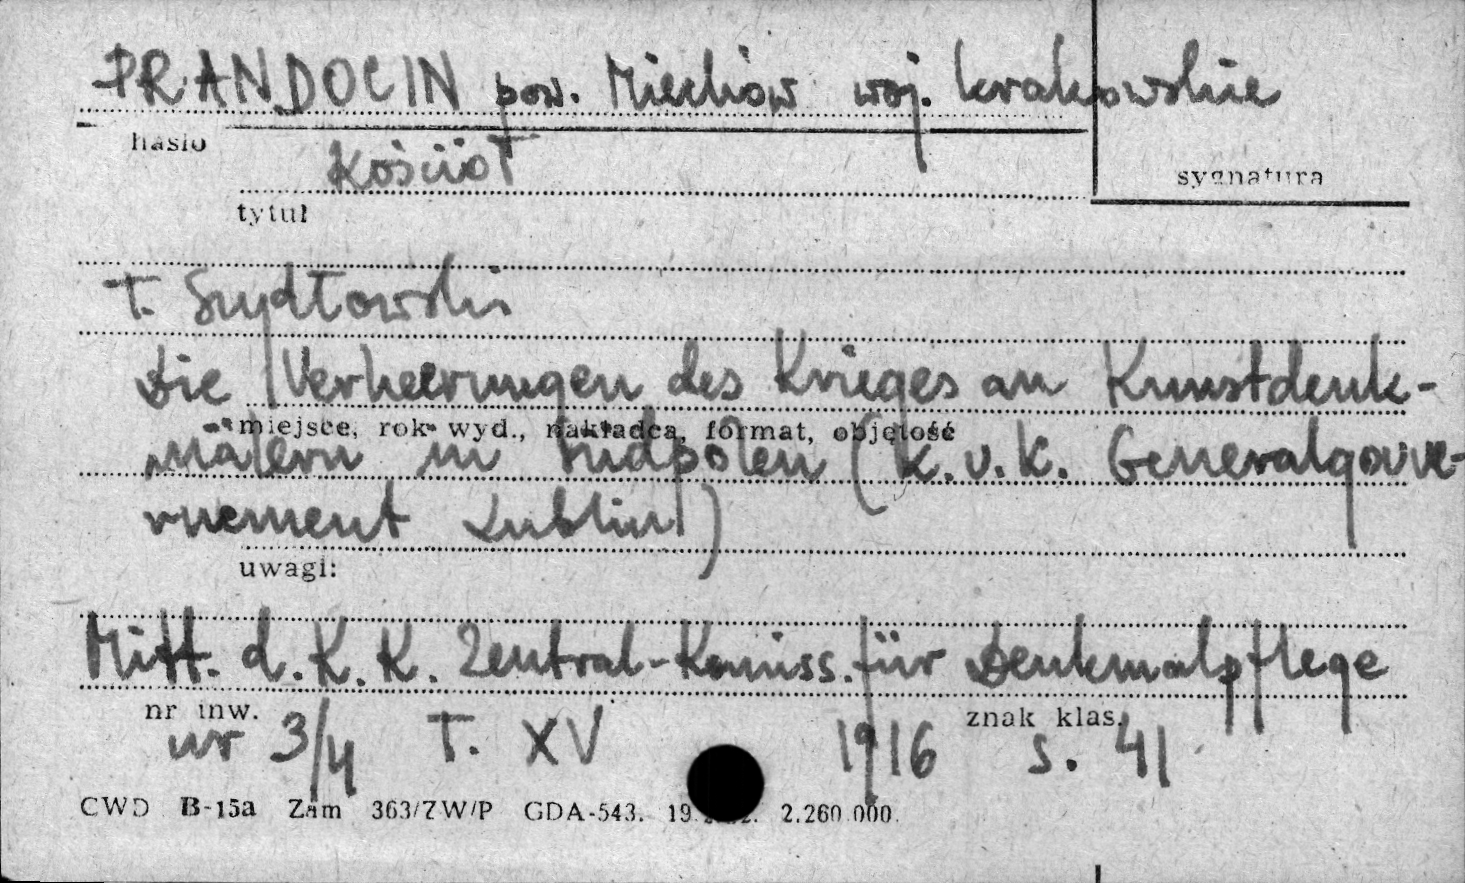 PRANDOCIN pow. Miechów woj. krakowskie
hasło
Kościół
sygnatura
tytuł
T. Szydłowski
Die Verheerungen des Krieges an Kunstdenk-
miejsce, rok wyd., nakładca, format, objętość
mälern in Südpolen (K.u.K. Generalgouve-
rnement Lublin)
uwagi:
Mitt. d. K. K. Zentral-Komiss. für Denkmalpflege
nr inw.
znak klas.
nr 3/4 T. XV 1916 s. 41
CWD B-15a Zam 363/ZW/P GDA-543. 19. 2.260.000.